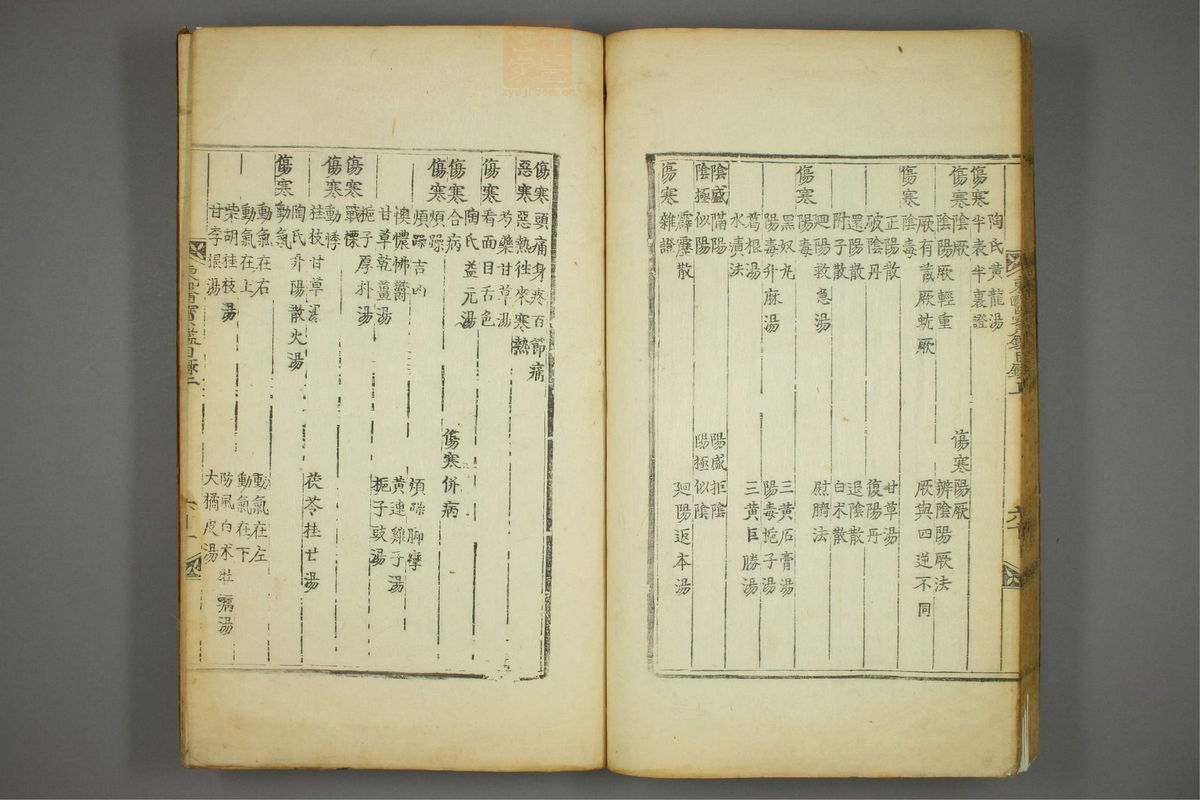 陶氏黃龍湯
傷寒半表半裏證
傷寒陰厥　傷寒陽厥
陰陽厥輕重　辨陰陽厥法
厥有藏厥蚘厥　厥與四逆不同
傷寒陰毒
正陽散　甘草湯
破陰丹　復陽丹
還陽散　退陰散
附子散　白朮散
廻陽救急湯　熨臍法
傷寒陽毒
黑奴丸　三黃石膏湯
陽毒升麻湯　陽毒梔子湯
葛根湯　三黃巨勝湯
水漬法
陰盛隔陽　陽盛拒陰
陰極似陽　陽極似陰
霹靂散　廻陽返本湯
傷寒雜證
傷寒頭痛身疼百節痛
惡寒惡熱往來寒熱
芍藥甘草湯
傷寒看面目舌色
陶氏益元湯
傷寒合病　傷寒併病
傷寒煩躁
煩躁吉凶　煩躁脚攣
懊憹怫鬱　黃連雞子湯
甘草乾薑湯　梔子豉湯
梔子厚朴湯
傷寒戰慄
傷寒動悸
桂枝甘草湯　茯苓桂甘湯
陶氏升陽散火湯
傷寒動氣
動氣在右　動氣在左
動氣在上　動氣在下
柴胡桂枝湯　防風白朮牡蠣湯
甘李根湯　大橘皮湯
東醫寶鑑目錄二